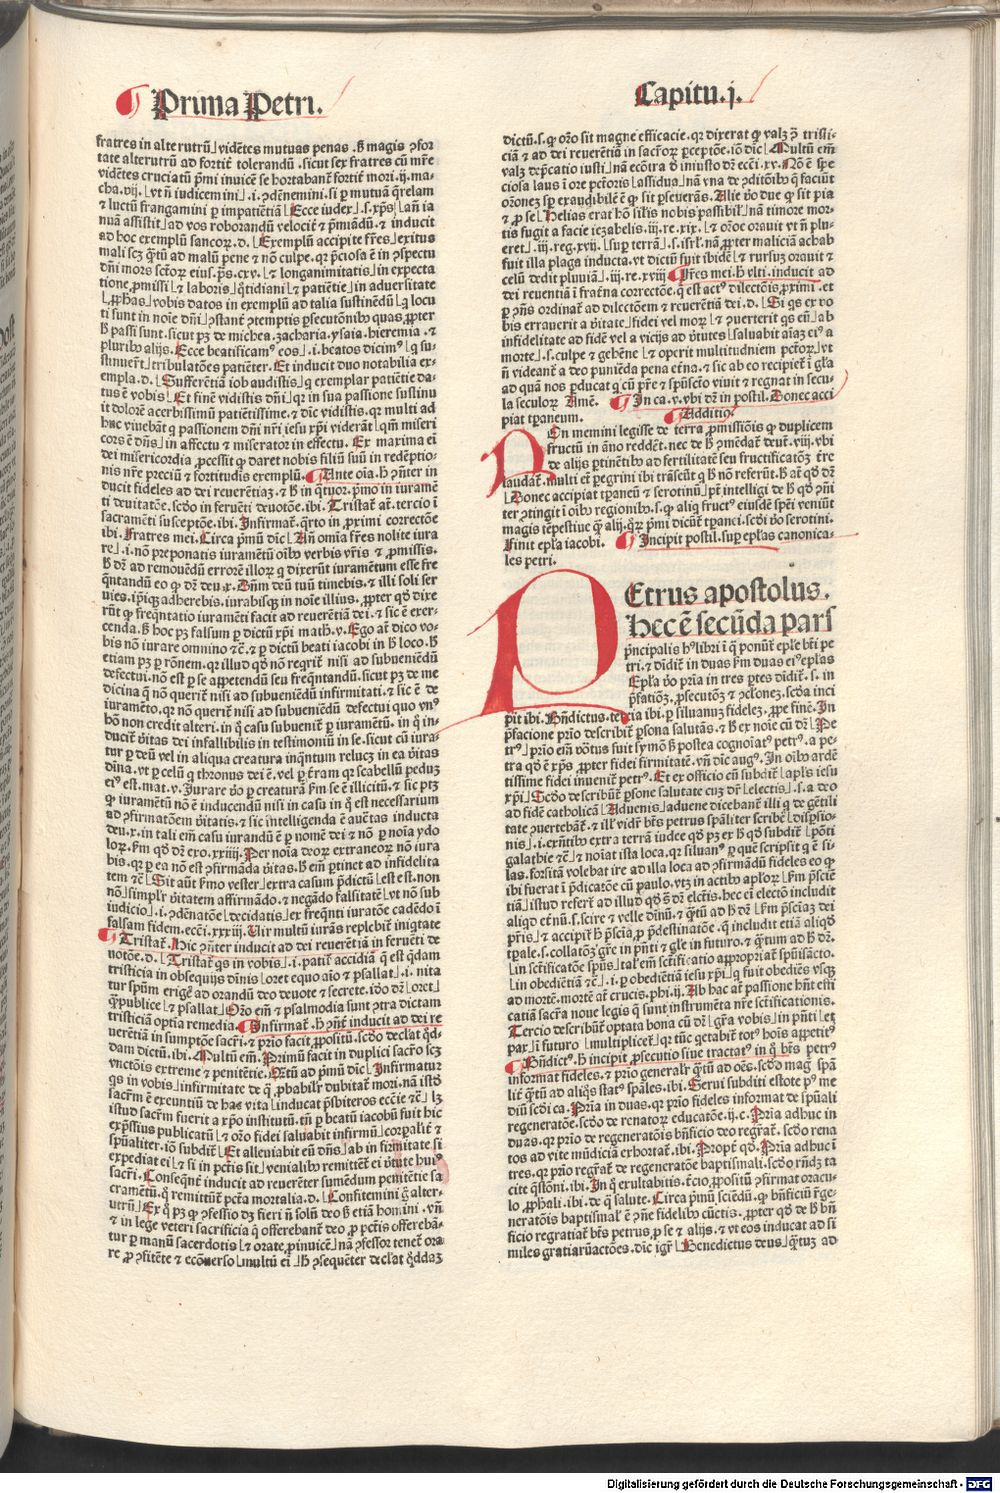 Prima Petri.
Capitu.j.
fratres in alte rutrũ⌋ vidẽtes mutuas penas . ẞ magis ꝯfor
tate alterutrũ ad fortit̃ tolerandũ . sicut seẋ fratres cũ mr̃e
vidẽtes cruciatũ p̃mi inuicẽ se hortabant̃ fortit̃ mori .ij. ma-
cha. vij. ⌊vt ñ iudicemini⌋ .i. ꝯdẽnemini .si ꝑ mutuã q̃relam
⁊ luctũ frangamini ꝑ impatiẽtiã ⌊Ecce iudex⌋ .s. xp̃s⌊ añ ia
nuã assistit⌋ ad vos roborandũ velocit̃ ⁊ p̃miãdũ . ⁊ inducit
ad hoc exemplũ sancoꝝ .d. ⌊Exemplũ accipite fr̃es⌋ exitus
mali scꝫ q̃tũ ad malũ pene ⁊ nõ culpe. qꝛ p̃ciosa ẽ in ꝯspectu
dñi mors sctõꝝ eius. ps̃. cxv. ⌊⁊ longanimitatis⌋ in expecta
tione ꝓmissi⌊ ⁊ laboris⌋ q̃tidiani⌊ ⁊ patiẽtie⌋ in aduersitate
⌊ꝓphas⌋ vobis datos in exemplũ ad talia sustinẽdũ⌊ q̃ locu
ti sunt in noĩe dñi⌋ ꝯstant̃ ꝯtemptis ꝑsecutõnibꝰ quas ꝓpter
ẖ passi sunt. sicut pꝫ de michea. zacharia. ysaia. hieremia . ⁊
pluribꝰ alijs. Ecce beatificamꝰ eos⌋ .i. beatos dicimꝰ⌊ q̃ su-
stinuer̃t⌋ tribulatões patiẽter. Et inducit duo notabilia ex-
empla .d. ⌊Sufferẽtiã iob audistis⌊ q̃ exemplar patiẽtie da-
tus ẽ vobis⌊ Et finẽ vidistis dñi⌋ qꝛ in sua passione sustinu
it dolorẽ acerbissimũ patiẽtissime. ⁊ dic̃ vidistis. qꝛ multi ad
huc viuebãt q̃ passionem dñi nr̃i iesu xp̃i viderãt⌊ qm̃ miseri
cors ẽ dñs⌋ in affectu ⁊ miserator in effectu. Ex maxima ei
dei misericordia ꝓcessit ꝙ daret nobis filiũ suũ in redẽptio-
nis nr̃e preciũ ⁊ fortitudis exemplũ. Ante oĩa. ẖ ꝯñter in
ducit fideles ad dei reuerẽtiaꝫ. ⁊ ẖ in q̃tuor. p̃mo in iuramẽ
ti deuitatõe. scđo in feruẽti deuotõe. ibi. Tristat̃ at̃. tercio ĩ
sacramẽti susceptõe. ibi. Infirmat̃. q̃rto in ꝓximi correctõe
ibi. Fratres mei. Circa p̃mũ dic̃⌊ Añ omĩa fr̃es nolite iura
re⌋ .i. nõ preponatis iuramẽtũ oĩbꝰ verbis vr̃is ⁊ ꝓmissis.
ẖ dr̃ ad remouẽdũ errorẽ illoꝝ q̃ dixerũt iuramẽtum esse fre
q̃ntandũ eo ꝙ dr̃ deu. x. Dñm deũ tuũ timebis. ⁊ illi soli ser
uies. ip̃iqꝫ adherebis. iurabisqꝫ in noĩe illius. ꝓpter qđ dixe
rũt ꝙ freq̃ntatio iuramẽti facit ad reuerẽtiã dei. ⁊ sic ẽ exer-
cenda. ẞ hoc pꝫ falsum ꝑ dictũ xp̃i math. v. Ego at̃ dico vo-
bis nõ iurare omnino ⁊c̃. ⁊ ꝑ dictũ beati iacobi in ẖ loco. ẖ
etiam pꝫ ꝑ rõnem. qꝛ illud qđ nõ reqrit̃ nisi ad subueniẽdũ
defectui. nõ est ꝑ se appetendũ seu freq̃ntandũ. sicut pꝫ de me
dicina q̃ nõ querit̃ nisi ad subueniẽdũ infirmitati. ⁊ sic ẽ de
iuramẽto. qꝛ nõ querit̃ nisi ad subueniẽdũ defectui quo vnꝰ
hõ non credit alteri. in q̃ casu subuenit̃ ꝑ iuramẽtũ. in q̃ in-
ducit̃ ṽitas dei infallibilis in testimoniũ in se. sicut cũ iura-
tur ꝑ deũ vel in aliqua creatura inq̃ntum relucꝫ in ea ṽitas
diña. vt ꝑ celũ q̃ thronus dei ẽ. vel ꝑ tr̃am qꝛ scabellũ peduꝫ
eiꝰ est. mat. v. Iurare ṽo ꝑ creaturã ẖm se ẽ illicitũ. ⁊ sic ptꝫ
ꝙ iuramẽtũ nõ ẽ inducendũ nisi in casu in q̃ est necessarium
ad ꝯfirmatõem ṽitatis. ⁊ sic intelligenda ẽ auc̃tas inducta
deu. x. in tali em̃ casu iurandũ ẽ ꝑ nomẽ dei ⁊ nõ ꝑ noĩa ydo
loꝝ. ẖm qđ dr̃ exo. xxiiij. Per noĩa deoꝝ extraneoꝝ nõ iura
bis. qꝛ ꝑ ea nõ est ꝯfirmãda ṽitas. ẖ em̃ ꝑtinet ad infidelita
tem ⁊c̃ ⌊Sit aũt ẖmo vester⌋ extra casum p̃dictũ⌊ est est. non
nõ⌋ simplr̃ ṽitatem affirmãdo. ⁊ negãdo falsitatẽ⌊ vt nõ sub
iudicio⌋ .i. ꝯdẽnatõe⌊ decidatis⌋ ex freq̃nti iuratõe cadẽdo ĩ
falsam fidem. ecc̃i. xxxiij. Vir multũ iurãs replebit̃ iniq̃tate
Tristat̃. Hic ꝯñter inducit ad dei reuerẽtiã in feruẽti de
uotõe. d. ⌊Tristat̃ q̃s in vobis⌋ .i. patit̃ accidiã q̃ est q̃dam
tristicia in obsequijs dĩnis⌊ oret equo aĩo ⁊ psallat⌋ .i. nita
tur sp̃um erige ad orandũ deo deuote ⁊ secrete. iđo dr̃⌊ oret⌋
q̃publice⌊ ⁊ psallat⌋ Or̃o em̃ ⁊ psalmodia sunt ꝯtra dictam
tristiciã optĩa remedia. Infirmat̃. ẖ ꝯñt̃ inducit ad dei re
uerẽtiã in sumptõe sacr̃i. ⁊ prĩo facit ꝓpositũ. scđo declat̃ q̃d-
dam dictũ. ibi. Multũ em̃. Primũ facit in duplici sacr̃o scꝫ
vnctõis extreme ⁊ penitẽtie. Q̃tũ ad p̃mũ dic̃⌊ Infirmatur
q̃s in vobis⌋ infirmitate de q̃ ꝓbabilr̃ dubitat̃ mori. nã istđ
sacr̃m ẽ exeuntiũ de hac vita⌊ inducat p̃sbiteros ecc̃ie ⁊c̃⌋ lꝫ
istud sacr̃m fuerit a xp̃o institutũ. tñ ꝑ beatũ iacobũ fuit hic
exp̃ssius publicatũ⌊ ⁊ or̃o fidei saluabit infirmũ⌋ corꝑalit̃ ⁊
sp̃ualiter. iõ subdit̃⌊ Et alleuiabit eũ dñs⌋ ab in firmitate si
expediat ei⌊ ⁊ si in pctis sit⌋ venialibꝰ remittẽt̃ ei ṽtute huiꝰ
sacr̃i. Conseqñt̃ inducit ad reuerẽter sumẽdum penitẽtie sa
cramẽtũ. q̃ remittũt̃ pctã mortalia. d. ⌊Confitemini g̃ alter-
utrũ⌋ Ex q̃ pꝫ ꝙ ꝯfessio dꝫ fieri ñ solũ deo ẞ etiã homini. vñ
⁊ in lege veteri sacrificia q̃ offerebant̃ deo ꝓ pctis offerebã-
tur ꝑ manũ sacerdotis⌊ ⁊ orate ꝓinuicẽ⌋ nã ꝯfessor tenet̃ ora
re ꝓ ꝯfitẽte ⁊ ecõuerso⌊ multũ ei⌋ ẖ ꝯseq̃ẽter declat̃ q̃ddaꝫ
dictũ. s. ꝙ or̃o sit magne efficacie. qꝛ dixerat ꝙ valꝫ ꝯ̃ tristi-
ciã ⁊ ad dei reuerẽtiã in sacr̃oꝝ ꝑceptõe. iõ dic̃⌊ Multũ em̃
valꝫ dep̃catio iusti⌋ nã ecõtra đ iniusto dr̃ ecc̃i. xv. Nõ ẽ spe
ciosa laus ĩ ore pctõris⌊ assidua⌋ nã vna de ꝯditõibꝰ q̃ faciũt
or̃onez sꝑ exaudibilẽ ẽ ꝙ sit ꝑseuerãs. Alie ṽo due ꝙ sit pia
⁊ ꝓ se⌊ Helias erat hõ sil̃is nobis passibil̃⌋ nã timore mor-
tis fugit a facie iezabelis. iij. re. xix. ⌊⁊ or̃oe orauit vt ñ plu-
eret⌋ .iij. reg. xvij. ⌊suꝑ terrã⌋ .s. isrl̃. nã ꝓpter maliciã achab
fuit illa plaga inducta. vt dictũ fuit ibidẽ⌊ ⁊ rursuꝫ orauit ⁊
celũ dedit pluuiã⌋ .iij. re. xviij. Fr̃es mei. ẖ vlti. inducit ad
dei reuẽtiã ĩ frat̃na correctõe. q̃ est actꝰ dilectõis ꝓximi. et
ꝑ ꝯñs ordinat̃ ad dilectõem ⁊ reuerẽtiã dei. d. ⌊Si q̃s ex vo
bis errauerit a ṽitate⌋ fidei vel morꝝ⌊ ⁊ ꝯuerterit q̃s eũ⌋ ab
infidelitate ad fidẽ vel a vicijs ad ṽtutes⌊ saluabit aĩaꝫ eiꝰ a
morte⌋ .s. culpe ⁊ gehẽne⌊ ⁊ operit multitudniem pctõꝝ⌋ vt
ñ videant̃ a deo punienda pena et̃na. ⁊ sic ab eo recipiet̃ ĩ gl̃a
ad quã nos ꝑducat q̃ cũ pr̃e ⁊ sp̃uscõ viuit ⁊ regnat in secu-
la seculoꝝ Amẽ. In ca. v. vbi dr̃ in postil. Donec acci
piat tꝑaneum. Additio.
NOn memini legisse de terra ꝓmissiõis ꝙ duplicem
fructũ in ãno reddẽt. nec de ẖ ꝯmẽdat̃ deut̃. viij. vbi
de alijs ꝑtinẽtibꝰ ad fertilitatẽ seu fructificatõꝫ tr̃e
laudat̃. multi em̃ ꝑegrini ibi trãseũt q̃ ẖ nõ referũt. ẖ at̃ qđ dr̃
Donec accipiat tꝑaneũ ⁊ serotinũ⌋ pt̃ intelligi de ẖ qđ ꝯñi
ter ꝯtingit ĩ oĩbꝰ regionibꝰ. s. ꝙ aliq̃ fructꝰ eiusđ sp̃ẽi veniũt
magis tẽpestiue q̃ alij. q̃ꝝ p̃mi dicũt̃ tꝑanci. scđi ṽo serotini.
Finit ep̃la iacobi. Incipit postil. suꝑ ep̃las canonica-
les petri.
PEtrus apostolus.
Hec ẽ secũda pars
p̃ncipalis hꝰ libri ĩ q̃ ponũt̃ ep̃le bt̃i pe
tri. ⁊ dĩdit̃ in duas ẖm duas eiꝰ ep̃las
Ep̃la ṽo prĩa in tres ꝑtes didit̃. s. in
p̃fatiõꝫ. ꝓsecutõꝫ ⁊ ꝯclonẽꝫ. scđa inci
pit ibi. Bñdictus. tercia ibi. ꝑ siluanuꝫ fidelez. ꝓpe finẽ. In
p̃facione prĩo describit̃ ꝑsona salutãs. ⁊ ẖ ex noĩe cũ dr̃⌊ Pe
trꝰ⌋ prĩo em̃ ṽõtus fuit symõ ẞ postea cognoĩatꝰ petrꝰ. a pe-
tra qđ ẽ xp̃s ꝓpter fidei firmitatẽ. vñ dic̃ augꝰ. In oĩbꝰ ardẽ
tissime fidei inuenit̃ petrꝰ. Et ex officio cũ subdit̃⌊ apl̃s iesu
xp̃i⌋ Scđo describũt̃ ꝑsone salutate cuꝫ dr̃⌊ electis⌋ .s. a deo
ad fidẽ catholicã⌊ Aduenis⌋ aduene dicebant̃ illi q̃ de gẽtili
tate ꝯuertebãt̃. ⁊ ill̃ videt̃ bt̃us petrus sp̃aliter scribe⌊ dispsio-
nis⌋ .i. exñtibꝰ extra terrã iudee qđ pꝫ ex ẖ qđ subdit̃⌊ põti
galathie ⁊c̃⌋ ⁊ noĩat ista loca. qꝛ siluanꝰ ꝑ quẽ scripsit q̃ ẽ si-
las. forsitã volebat ire ad illa loca ad ꝯfirmãdũ fideles eo ꝙ
ibi fuerat ĩ p̃dicatõe cũ paulo. vtꝫ in actibꝰ apl̃oꝝ⌊ ẖm p̃sciẽ
tiã⌋ istud refert̃ ad illud qđ s̃ dr̃ elect̃is. hec ei electõ includit
aliqđ et̃nũ. s. scire ⁊ velle diuinũ. ⁊ q̃tũ ad ẖ dr̃⌊ ẖm p̃sciãꝫ dei
pr̃is⌋ ⁊ accipit̃ ẖ p̃scĩa ꝓ p̃destinatõe. q̃ includit etiã aliqđ
tꝑale. s. collatõꝫ gr̃e in p̃nti ⁊ gle in futuro. ⁊ q̃tum ad ẖ dr̃.
⌊in sctificatõe sp̃us⌋ tal̃ em̃ sctificatio appropriat̃ sp̃uiscõ.
⌊in obediẽtiã ⁊c̃⌋ .i. ꝑ obediẽtiã iesu xp̃i⌋ q̃ fuit obediẽs vsqꝫ
ad mortẽ. mortẽ at̃ crucis. phi. ij. Ab hac at̃ passione hñt effi
catiã sacr̃a noue legis q̃ sunt instrumẽta nr̃e sctificationis.
Tercio describũt̃ optata bona cũ dr̃⌊ gr̃a vobis⌋ in p̃nti⌊ et
pax⌋ ĩ futuro⌊ multiplicet̃⌋ qꝛ tũc q̃tabit̃ totꝰ hoĩs appetitꝰ
Bñdictꝰ. ẖ incipit ꝓsecutio siue tractatꝰ in q̃ bt̃s petrꝰ
informat fideles. ⁊ prĩo generalr̃ q̃tũ ad oẽs. scđo mag̃ spã
lit̃ q̃tũ ad aliq̃s statꝰ sp̃ales. ibi. Serui subditi estote pꝰ me
diũ scđi ca. Prĩa in duas. qꝛ prĩo fideles informat de sp̃uali
regeneratõe. scđo de renatoꝝ educatõe. ij. c. Prĩa adhuc in
duas. qꝛ prĩo de regeneratõis bñficio deo regr̃at̃. scđo rena
tos ad vite mũdiciã exhortat̃. ibi. Propt̃ qđ. Prĩa adhuc ĩ
tres. qꝛ prĩo regr̃at̃ de regeneratõe baptismali. scđo rñdꝫ ta
cite q̃stõni. ibi. In q̃ exultabitis. tc̃io ꝓpositũ ꝯfirmat oracu-
lo ꝓphali. ibi. de q̃ salute. Circa p̃mũ sciẽdũ. ꝙ bñficiũ r̃ge-
neratõis baptismal̃ ẽ ꝯmune fidelibꝰ cũctis. ꝓpter qđ de ẖ bñ
ficio regratiat̃ bt̃s petrus. ꝓ se ⁊ alijs. ⁊ vt eos inducat ad si
miles gratiarũactões. dic̃ igr̃⌊ Benedictus deus⌋ q̃tuꝫ ad
Digitalisierung gefördert durch die Deutsche Forschungsgemeinschaft - DFG